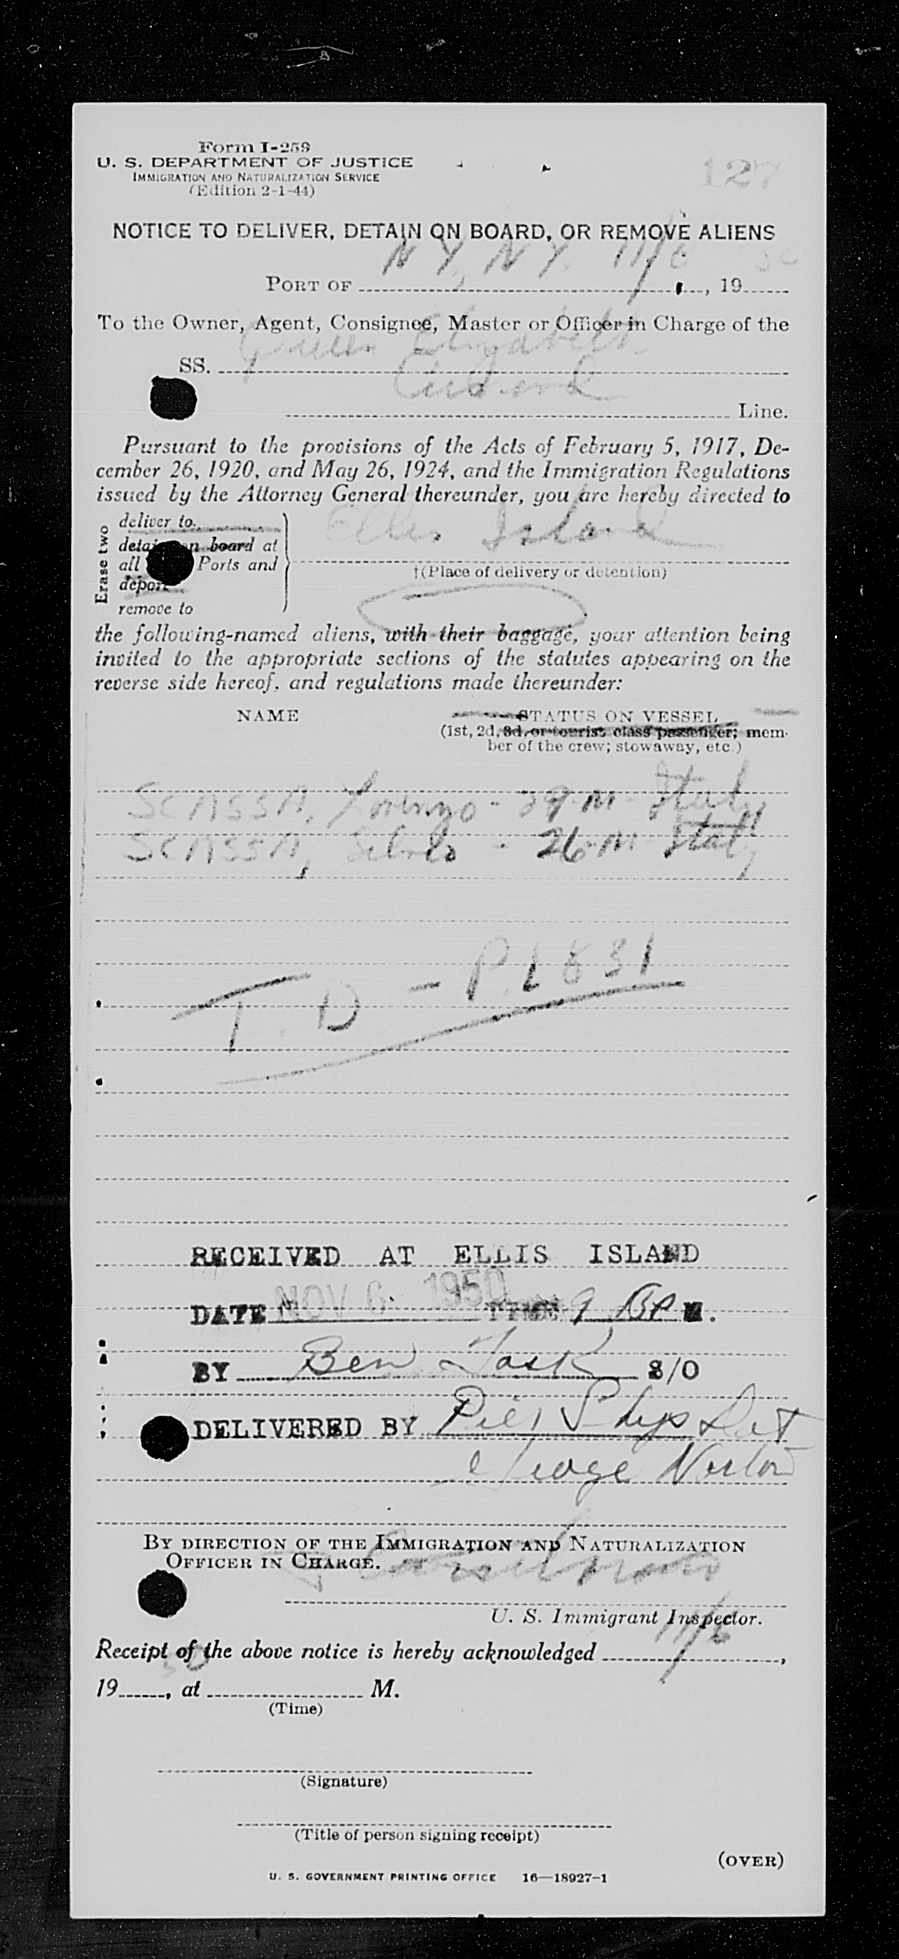 Form I-259
U. S. DEPARTMENT OF JUSTICE
IMMIGRATION AND NATURALIZATION SERVICE
(Edition 2-1-44)
127
NOTICE TO DELIVER, DETAIN ON BOARD, OR REMOVE ALIENS
PORT OF N Y, N Y. 11/6, 19 50
To the Owner, Agent, Consignee, Master or Officer in Charge of the
SS. Queen Elizabeth
Cunard Line.
Pursuant to the provisions of the Acts of February 5, 1917, De-
cember 26, 1920, and May 26, 1924, and the Immigration Regulations
issued by the Attorney General thereunder, you are hereby directed to
Erase two
deliver to
detain on board at
all Ports and
deport
remove to
Ellis Island
†(Place of delivery or detention)
the following-named aliens, with their baggage, your attention being
invited to the appropriate sections of the statutes appearing on the
reverse side hereof, and regulations made thereunder:
NAME STATUS ON VESSEL
(1st, 2d, 3d, or tourist class passenger; mem-
ber of the crew; stowaway, etc.)
SCASSA, Lorenzo - 29 - M - Italy
SCASSA, - 26 - M Italy
T. D - P. L 831
RECEIVED AT ELLIS ISLAND
DATE NOV 6. 1950 TIME 9 P M.
BY Ben Task S/O
DELIVERED BY Pier Ships Det
George Norton
BY DIRECTION OF THE IMMIGRATION AND NATURALIZATION
OFFICER IN CHARGE.
U. S. Immigrant Inspector.
Receipt of the above notice is hereby acknowledged 11/6,
19 50, at M.
(Time)
(Signature)
(Title of person signing receipt)
(OVER)
U. S. GOVERNMENT PRINTING OFFICE 16—18927-1